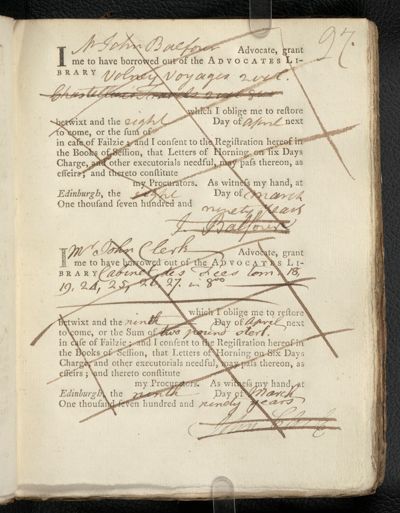 97.
I Mr John Balfour Advocate, grant
me to have borrowed out of the ADVOCATES LI-
BRARY Volney Voyages 2 vol.
which I oblige me to reſtore
betwixt and the eight Day of April next
to come, or the ſum of
in caſe of Failzie; and I conſent to the Regiſtration hereof in
the Books of Seſſion, that Letters of Horning on ſix Days
Charge, and other executorials needful, may paſs thereon, as
effeirs; and thereto conſtitute
my Procurators. As witneſs my hand, at
Edinburgh, the eight Day of March
One thouſand ſeven hundred and
ninety years
J. Balfour
I Mr John Clerk Advocate, grant
me to have borrowed out of the ADVOCATES LI-
BRARY Cabinet des Fees tom. 18,
19. 24, 25, 26. 27. in 8vo
which I oblige me to reſtore
betwixt and the ninth Day of April next
to come, or the Sum of two pound sterl.
in caſe of Failzie; and I conſent to the Regiſtration hereof in
the Books of Seſſion, that Letters of Horning on Six Days
Charge, and other executorials needful, may paſs thereon, as
effeirs; and thereto conſtitute
my Procurators. As witneſs my hand, at
Edinburgh, the ninth Day of March
One thouſand ſeven hundred and ninety years
John Clerk